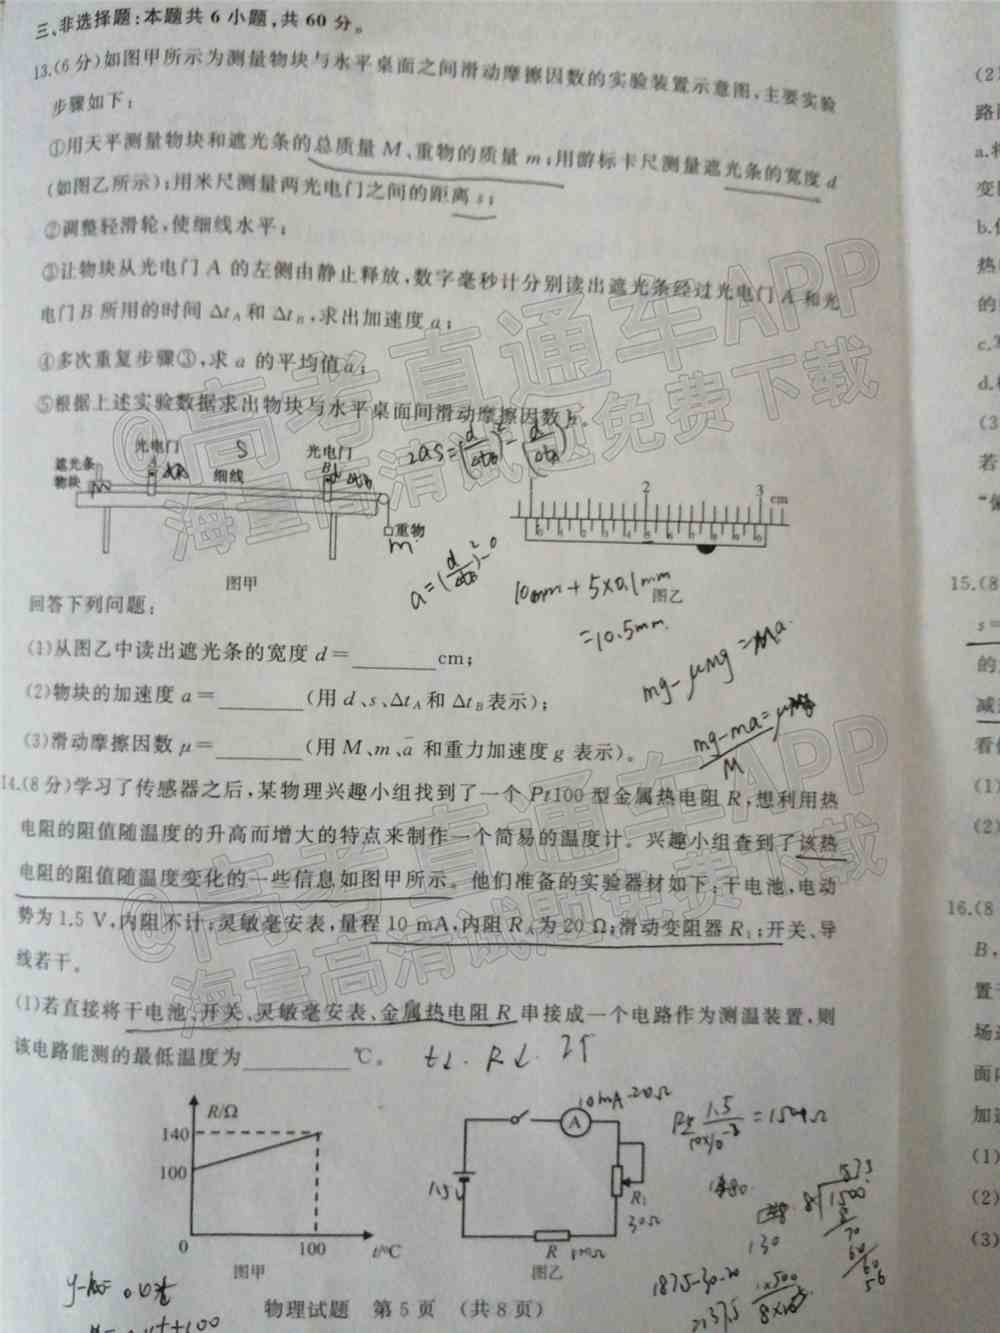 三、非选择题:本题共6小题,共60分。
13.(6分)如图甲所示为测量物块与水平桌面之间滑动摩擦因数的实验装置示意图,主要实验
步骤如下:
①用天平测量物块和遮光条的总质量M、重物的质量m;用游标卡尺测量遮光条的宽度d
(如图乙所示);用米尺测量两光电门之间的距离s;
②调整轻滑轮,使细线水平;
③让物块从光电门A的左侧由静止释放,数字毫秒计分别读出遮光条经过光电门A和光
电门B所用的时间Δt_A和Δt_B,求出加速度a;
④多次重复步骤③,求a的平均值a̅;
⑤根据上述实验数据求出物块与水平桌面间滑动摩擦因数μ。
光电门 S 光电门
遮光条 A B
物块 细线
重物
m
图甲
2as=(d/Δt_B)²-(d/Δt_A)²
2 3 cm
图乙
10mm+5×0.1mm
=10.5mm
mg-μMg=Ma
回答下列问题:
(1)从图乙中读出遮光条的宽度d=________cm;
(2)物块的加速度a=________(用d、s、Δt_A和Δt_B表示);
(3)滑动摩擦因数μ=________(用M、m、a̅和重力加速度g表示)。
14.(8分)学习了传感器之后,某物理兴趣小组找到了一个Pt100型金属热电阻R,想利用热
电阻的阻值随温度的升高而增大的特点来制作一个简易的温度计。兴趣小组查到了该热
电阻的阻值随温度变化的一些信息如图甲所示。他们准备的实验器材如下:干电池,电动
势为1.5V,内阻不计;灵敏毫安表,量程10mA,内阻R_A为20Ω;滑动变阻器R₁;开关、导
线若干。
(1)若直接将干电池、开关、灵敏毫安表、金属热电阻R串接成一个电路作为测温装置,则
该电路能测的最低温度为________℃。
t↓. R↓. I↑
R/Ω
140
100
0 100 t/℃
图甲
10mA 20Ω
A
1.5V
R₁
30Ω
R
图乙
130
8 1500
物理试题 第5页 (共8页)
(2
路
a.
变
b.
热
的
c.
d.
(3
若
15.(8
s=
的
减
看
(1)
(2)
16.(8
B,
置
场
面
加
(1)
(2)
(3)
@高考直通车APP
海量高清试题免费下载
@高考直通车APP
海量高清试题免费下载